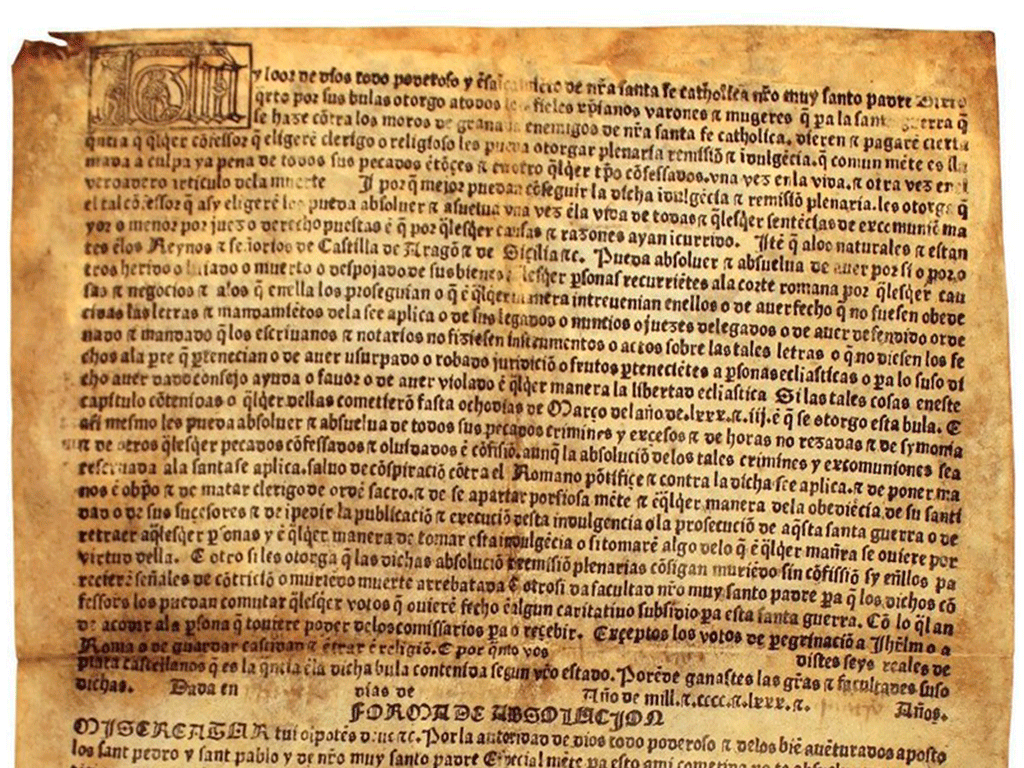 y loor de dios todo poderoso y ẽsalçamiẽto de nr̃a santa fe catholica nr̃o muy santo padre Sixto
q̃rto por sus bulas otorgo a todos los fieles xp̃ianos varones ⁊ mugeres q̃ pa la santa guerra q̃
se haze cõtra los moros de granada enemigos de nr̃a santa fe catholica. dieren ⁊ pagarẽ cierta
quãtia q̃ q̃lq̃er cõfessor q̃ eligerẽ clerigo o religioso les pueda otorgar plenaria remissiõ ⁊ indulgẽcia. q̃ comun mẽte es lla
mada a culpa ya pena de todos sus pecados ẽtõçes ⁊ en otro q̃lq̃er tp̃o cõfessados. vna vez en la vida. ⁊ otra vez en el
verdadero articulo dela muerte II por q̃ mejor puedan cõseguir la dicha indulgẽcia ⁊ remissiõ plenaria. les otorga q̃
el tal cõfessor q̃ asy eligerẽ los pueda absoluer ⁊ asuelua vna vez ẽla vida de todas ⁊ q̃lesq̃er sentẽcias de excomuniẽ ma
yor o menor por juez o derecho puestas ẽ q̃ por q̃lesq̃er causas ⁊ razones ayan icurrido. Itẽ q̃ alos naturales ⁊ estan
tes ẽlos Reynos ⁊ señorios de Castilla de Aragõ ⁊ de Sicilia ⁊c. Pueda absoluer ⁊ absuelua de auer por si o por o
tros herido o lijado o muerto o despojado de sus bienes q̃lesq̃er p̃sonas recurriẽtes ala corte romana por q̃lesq̃er cau
sas ⁊ negocios ⁊ a los q̃ enella los proseguian o q̃ ẽ q̃lq̃er manera intreuenian enellos o de auer fecho q̃ no fuesen obede
cidas las letras ⁊ mandamiẽtos dela see aplica o de sus legados o nuncios o juezes delegados o de auer defendido o rde
nado ⁊ mandado q̃ los escriuanos ⁊ notarios no fiziesen instrumentos o actos sobre las tales letras o q̃ no diesen los fe
chos ala p̃te q̃ p̃tenecian o de auer usurpado o robado juridiciõ o frutos p̃teneciẽtes a p̃sonas ecliasticas o pa lo suso di
cho auer dado consejo ayuda o fauor o de auer violado ẽ q̃lq̃er manera la libertad ecliastica Si las tales cosas eneste
capitulo cõtenidas o q̃lq̃er dellas cometierõ fasta ocho dias de Março del año de. lxxx. ⁊. iij. ẽ q̃ se otorgo esta bula. E
asi mesmo les pueda absoluer ⁊ absuelua de todos sus pecados crimines y excesos ⁊ de horas no rezadas ⁊ de symonia
⁊ de otros q̃lesq̃er pecados cõfessados ⁊ oluidados ẽ cõfisiõ. aunq̃ la absoluciõ delos tales crimines y excomuniones sea
reseruada ala santa se aplica. saluo de cõspiraciõ cõtra el Romano põtifiçe ⁊ contra la dicha see aplica. ⁊ de poner ma
nos ẽ obp̃o ⁊ de matar clerigo de ordẽ sacro. ⁊ de se apartar porfiosa mẽte ⁊ ẽ q̃lq̃er manera dela obediẽcia de su santi
dad o de sus sucesores ⁊ de ipedir la publicaciõ ⁊ execuciõ desta indulgencia o la prosecuciõ de aq̃sta santa guerra o de
retraer aq̃lesq̃er p̃sonas y ẽ q̃lq̃er manera de tomar esta indulgẽcia o si tomarẽ algo delo q̃ ẽ q̃lq̃er mañra se ouiere por
virtud della. E otro si les otorga q̃ las dichas absoluciõ ⁊ remissiõ plenarias cõsigan muriẽdo sin cõfissiõ sy enllos pa
recierẽ señales de cõtriciõ o muriẽdo muerte arrebatada E otrosi da facultad nr̃o muy santo padre pa q̃ los dichos cõ
fessors los puedan comutar q̃lesq̃er votos q̃ ouierẽ fecho ẽ algun caritatiuo subsidio pa esta santa guerra. Cõ lo q̃l an
de acodir ala p̃sona q̃ touiere poder delos comissarios pa o recebir. Exceptos los votos de peg̃rinaciõ a Jhr̃lm o a
Roma o de guardar castidad ⁊ ẽtrar ẽ religiõ. E por q̃nto vos distes seys reales de
plata castellanos q̃ es la q̃ntia ẽla dicha bula contenida segun vr̃o estado. Por ẽde ganastes las gr̃as ⁊ facultades suso
dichas. Dada en dias de Año de mill. ⁊. cccc. ⁊. lxxx. ⁊. Años.
FORMA DE ABSOLUCION
MISEREATUR tui oĩpotẽs deus ⁊c. Por la autoridad de dios todo poderoso ⁊ delos biẽ auẽturados aposto
los sant pedro y sant pablo y de nr̃o muy santo padre Especial mẽte pa esto ami cometida